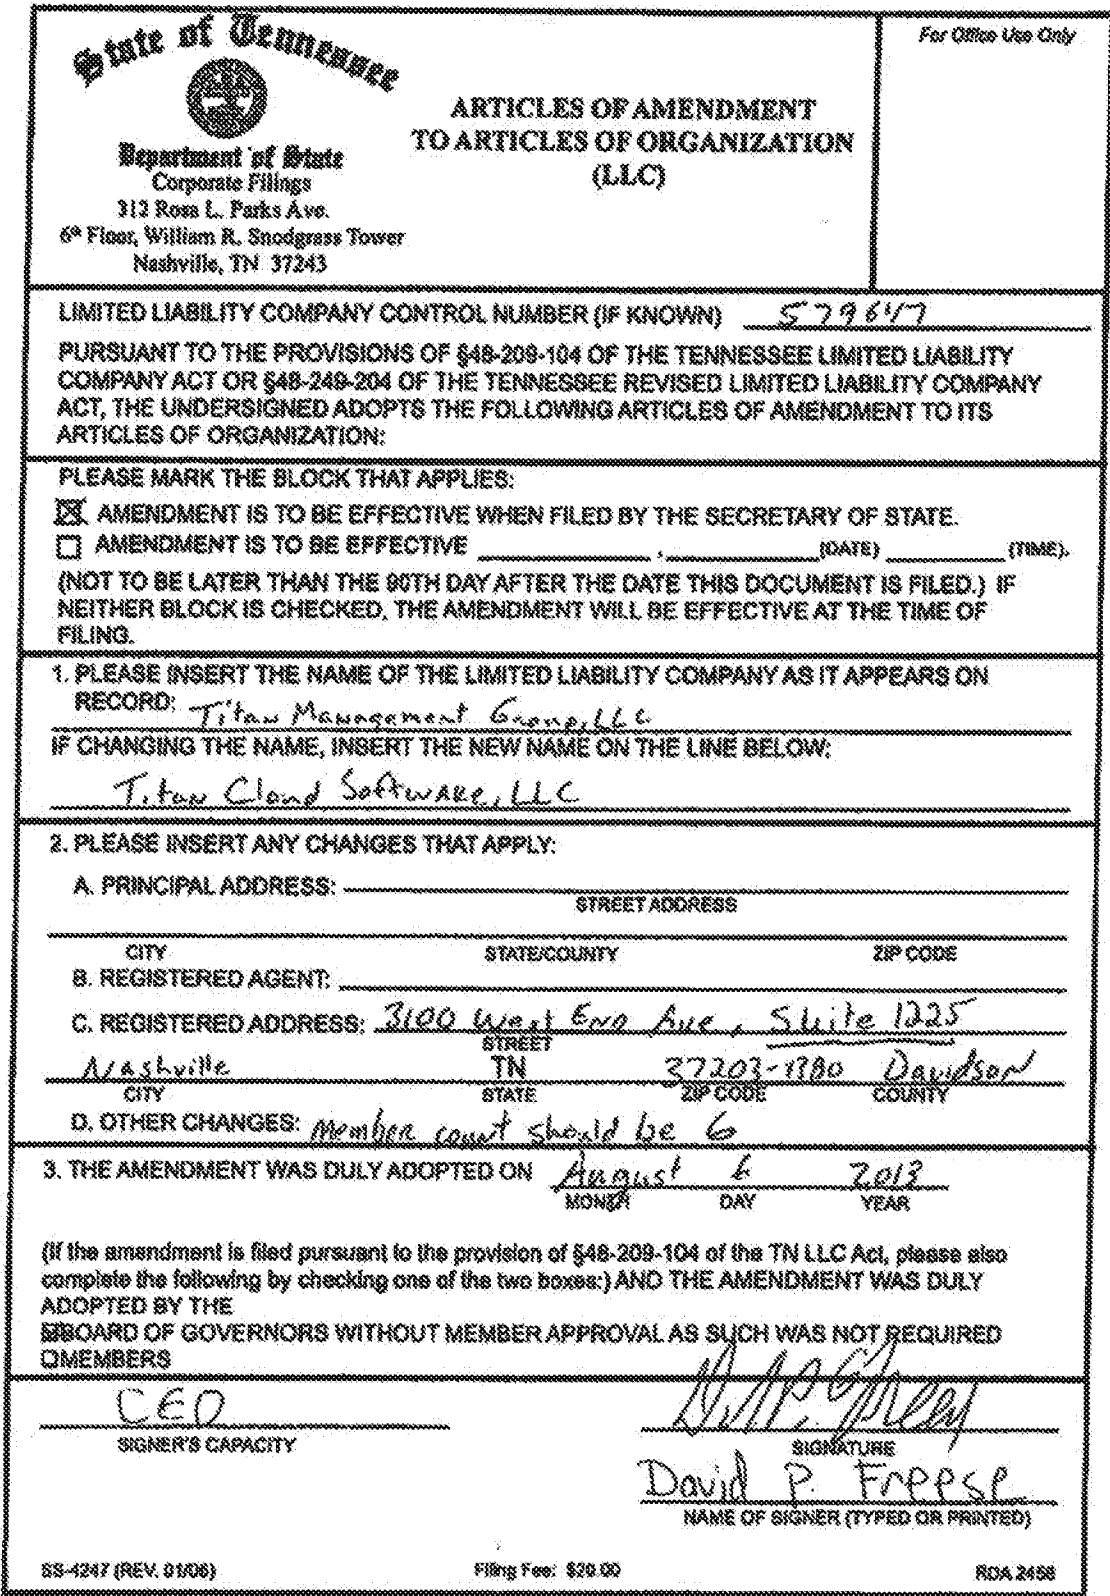 State of Tennessee
For Office Use Only
Department of State
Corporate Filings
312 Rosa L. Parks Ave.
6th Floor, William R. Snodgrass Tower
Nashville, TN 37243
ARTICLES OF AMENDMENT
TO ARTICLES OF ORGANIZATION
(LLC)
LIMITED LIABILITY COMPANY CONTROL NUMBER (IF KNOWN) 579647
PURSUANT TO THE PROVISIONS OF §48-209-104 OF THE TENNESSEE LIMITED LIABILITY
COMPANY ACT OR §48-249-204 OF THE TENNESSEE REVISED LIMITED LIABILITY COMPANY
ACT, THE UNDERSIGNED ADOPTS THE FOLLOWING ARTICLES OF AMENDMENT TO ITS
ARTICLES OF ORGANIZATION:
PLEASE MARK THE BLOCK THAT APPLIES:
☒ AMENDMENT IS TO BE EFFECTIVE WHEN FILED BY THE SECRETARY OF STATE.
☐ AMENDMENT IS TO BE EFFECTIVE ____________, ____________ (DATE) ________ (TIME).
(NOT TO BE LATER THAN THE 90TH DAY AFTER THE DATE THIS DOCUMENT IS FILED.) IF
NEITHER BLOCK IS CHECKED, THE AMENDMENT WILL BE EFFECTIVE AT THE TIME OF
FILING.
1. PLEASE INSERT THE NAME OF THE LIMITED LIABILITY COMPANY AS IT APPEARS ON
RECORD: Titan Management Group, LLC
IF CHANGING THE NAME, INSERT THE NEW NAME ON THE LINE BELOW:
Titan Cloud Software, LLC
2. PLEASE INSERT ANY CHANGES THAT APPLY:
A. PRINCIPAL ADDRESS:
STREET ADDRESS
CITY STATE/COUNTY ZIP CODE
B. REGISTERED AGENT:
C. REGISTERED ADDRESS: 3100 West End Ave, Suite 1225
STREET
Nashville TN 37203- Davidson
CITY STATE ZIP CODE COUNTY
D. OTHER CHANGES: Member count should be 6
3. THE AMENDMENT WAS DULY ADOPTED ON August 6 2013
MONTH DAY YEAR
(If the amendment is filed pursuant to the provision of §48-209-104 of the TN LLC Act, please also
complete the following by checking one of the two boxes:) AND THE AMENDMENT WAS DULY
ADOPTED BY THE
☒BOARD OF GOVERNORS WITHOUT MEMBER APPROVAL AS SUCH WAS NOT REQUIRED
☐MEMBERS
CEO
SIGNER'S CAPACITY
SIGNATURE
David P. Freese
NAME OF SIGNER (TYPED OR PRINTED)
SS-4247 (REV. 01/06) Filing Fee: $20.00 RDA 2458